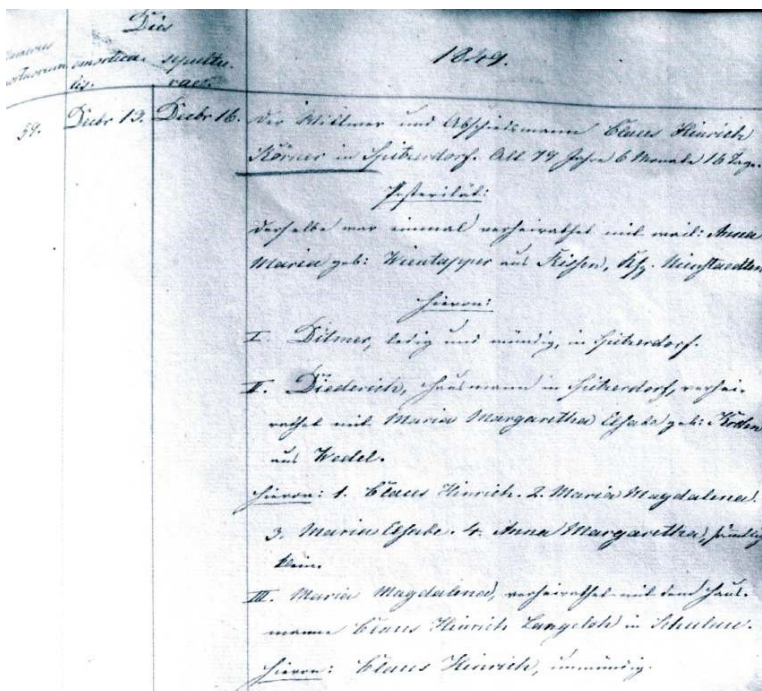 Dies
1849.
numerus mortuorum emortua- sepultu-
lis. rae.
59. Decbr 13. Decbr 16. Der Wittwer und Abschiedsmann Claus Hinrich
Körner in Spitzerdorf. Alt 79 Jahre 6 Monate 16 Tage.
Posterität:
Derselbe war einmal verheirathet mit weil: Anna
Maria geb: Wientapper aus Rissen, Ksp. Nienstaedten
Hievon:
I. Ditmer, ledig und mündig, in Spitzerdorf.
II. Diederich, Hausmann in Spitzerdorf, verhei-
rathet mit Maria Margaretha Elsabe geb: Kröhn
aus Wedel.
Hievon: 1. Claus Hinrich. 2. Maria Magdalena.
3. Maria Elsabe. 4. Anna Margaretha, sämtlich
klein.
III. Maria Magdalena, verheirathet mit dem Haus-
manne Claus Hinrich Langeloh in Schulau.
Hievon: Claus Hinrich, unmündig.